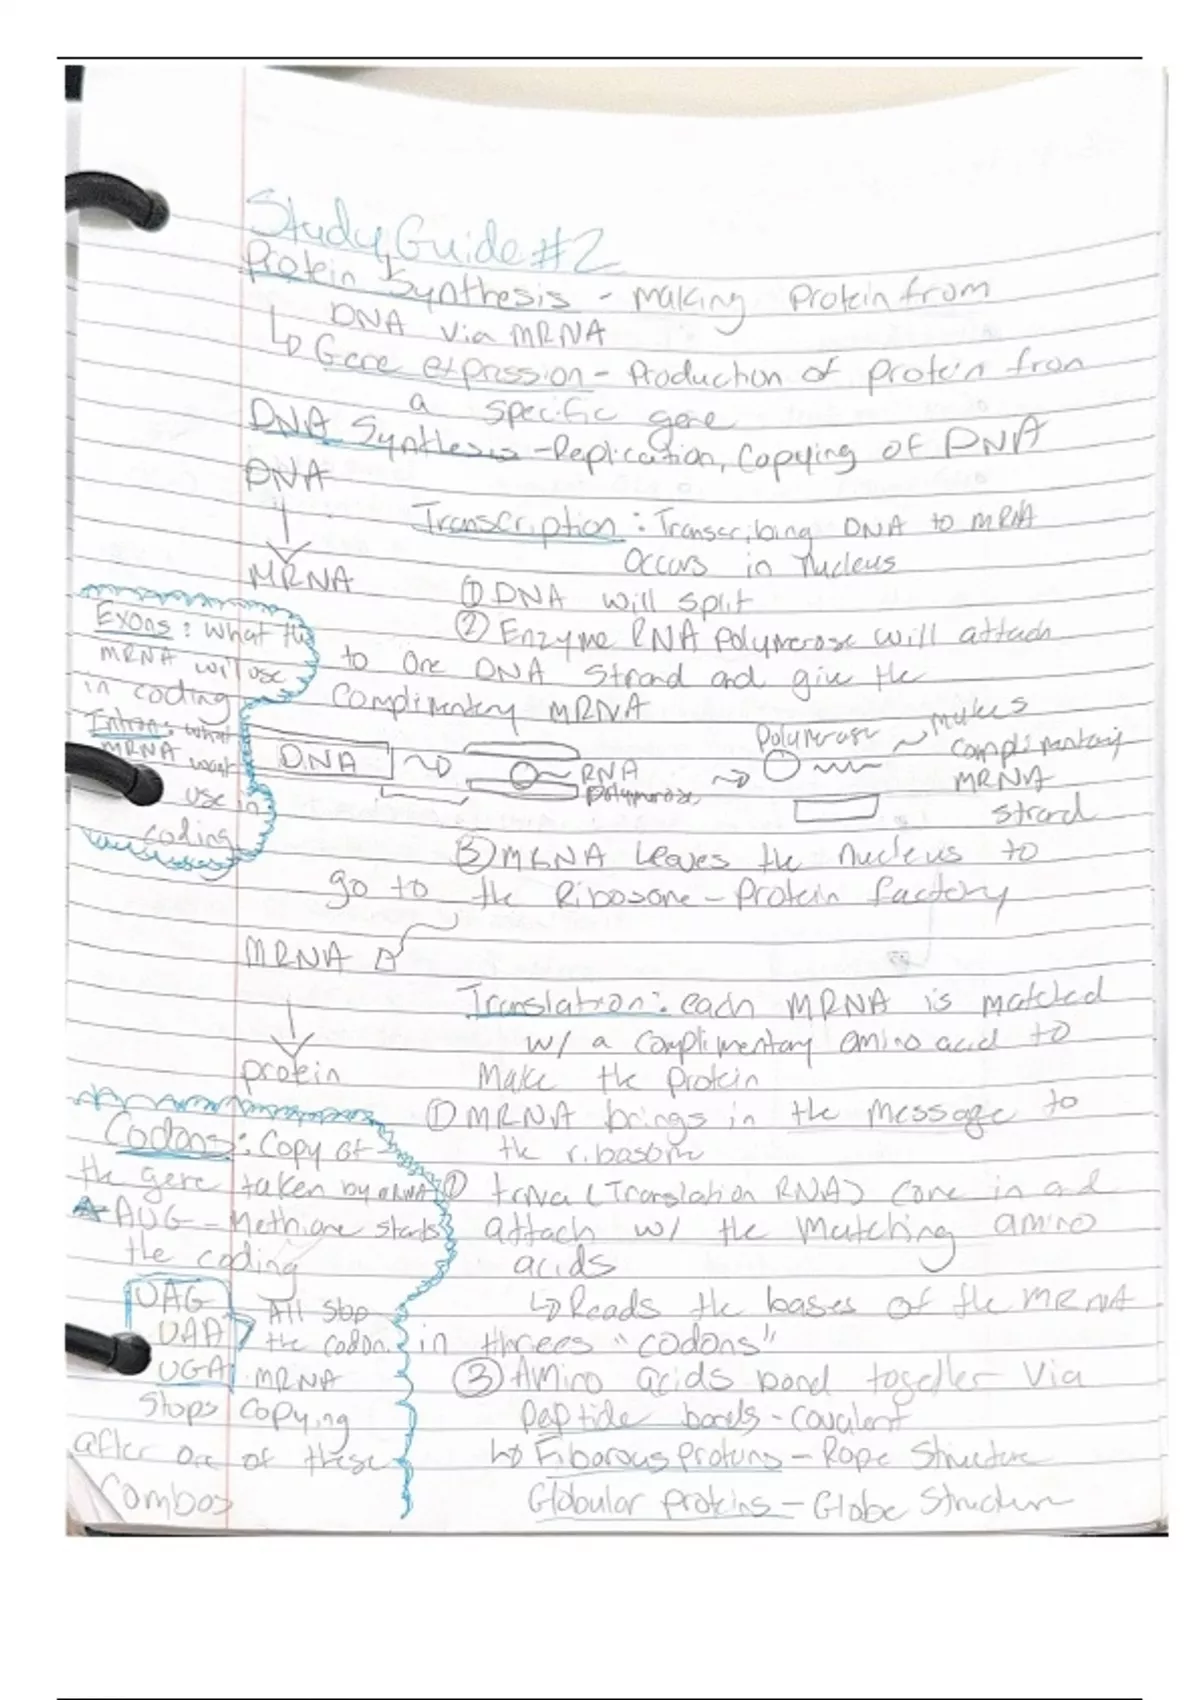 Study Guide #2
Protein Synthesis - Making Protein from
DNA via MRNA
↳ Gene expression - Production of protein from
a specific gene
DNA Synthesis - Replication, Copying of DNA
DNA
Transcription: Transcribing DNA to MRNA
Occurs in Nucleus
MRNA
① DNA will split
② Enzyme RNA Polymerase will attach
to one DNA Strand and give the
Complimentary MRNA
Exons: What the
MRNA will use
in coding
Intron: what
MRNA wont
use in
coding
DNA
RNA
polymerase
Polymerase
makes
complimentary
MRNA
strand
③ MRNA Leaves the nucleus to
go to the Ribosome - Protein factory
MRNA
Translation: each MRNA is matched
w/ a complimentary amino acid to
Make the protein
protein
① MRNA brings in the message to
the ribosome
② trna (Translation RNA) come in and
attach w/ the Matching amino
acids
↳ Reads the bases of the MRNA
in threes "codons"
③ Amino acids bond together via
Peptide bonds - Covalent
↳ Fiborous proteins - Rope Structure
Globular proteins - Globe Structure
Codons: Copy of
the gene taken by MRNA
AUG - Methione starts
the coding
UAG
UAA
UGA
All stop
the codon.
MRNA
Stops copying
after one of these
Combos